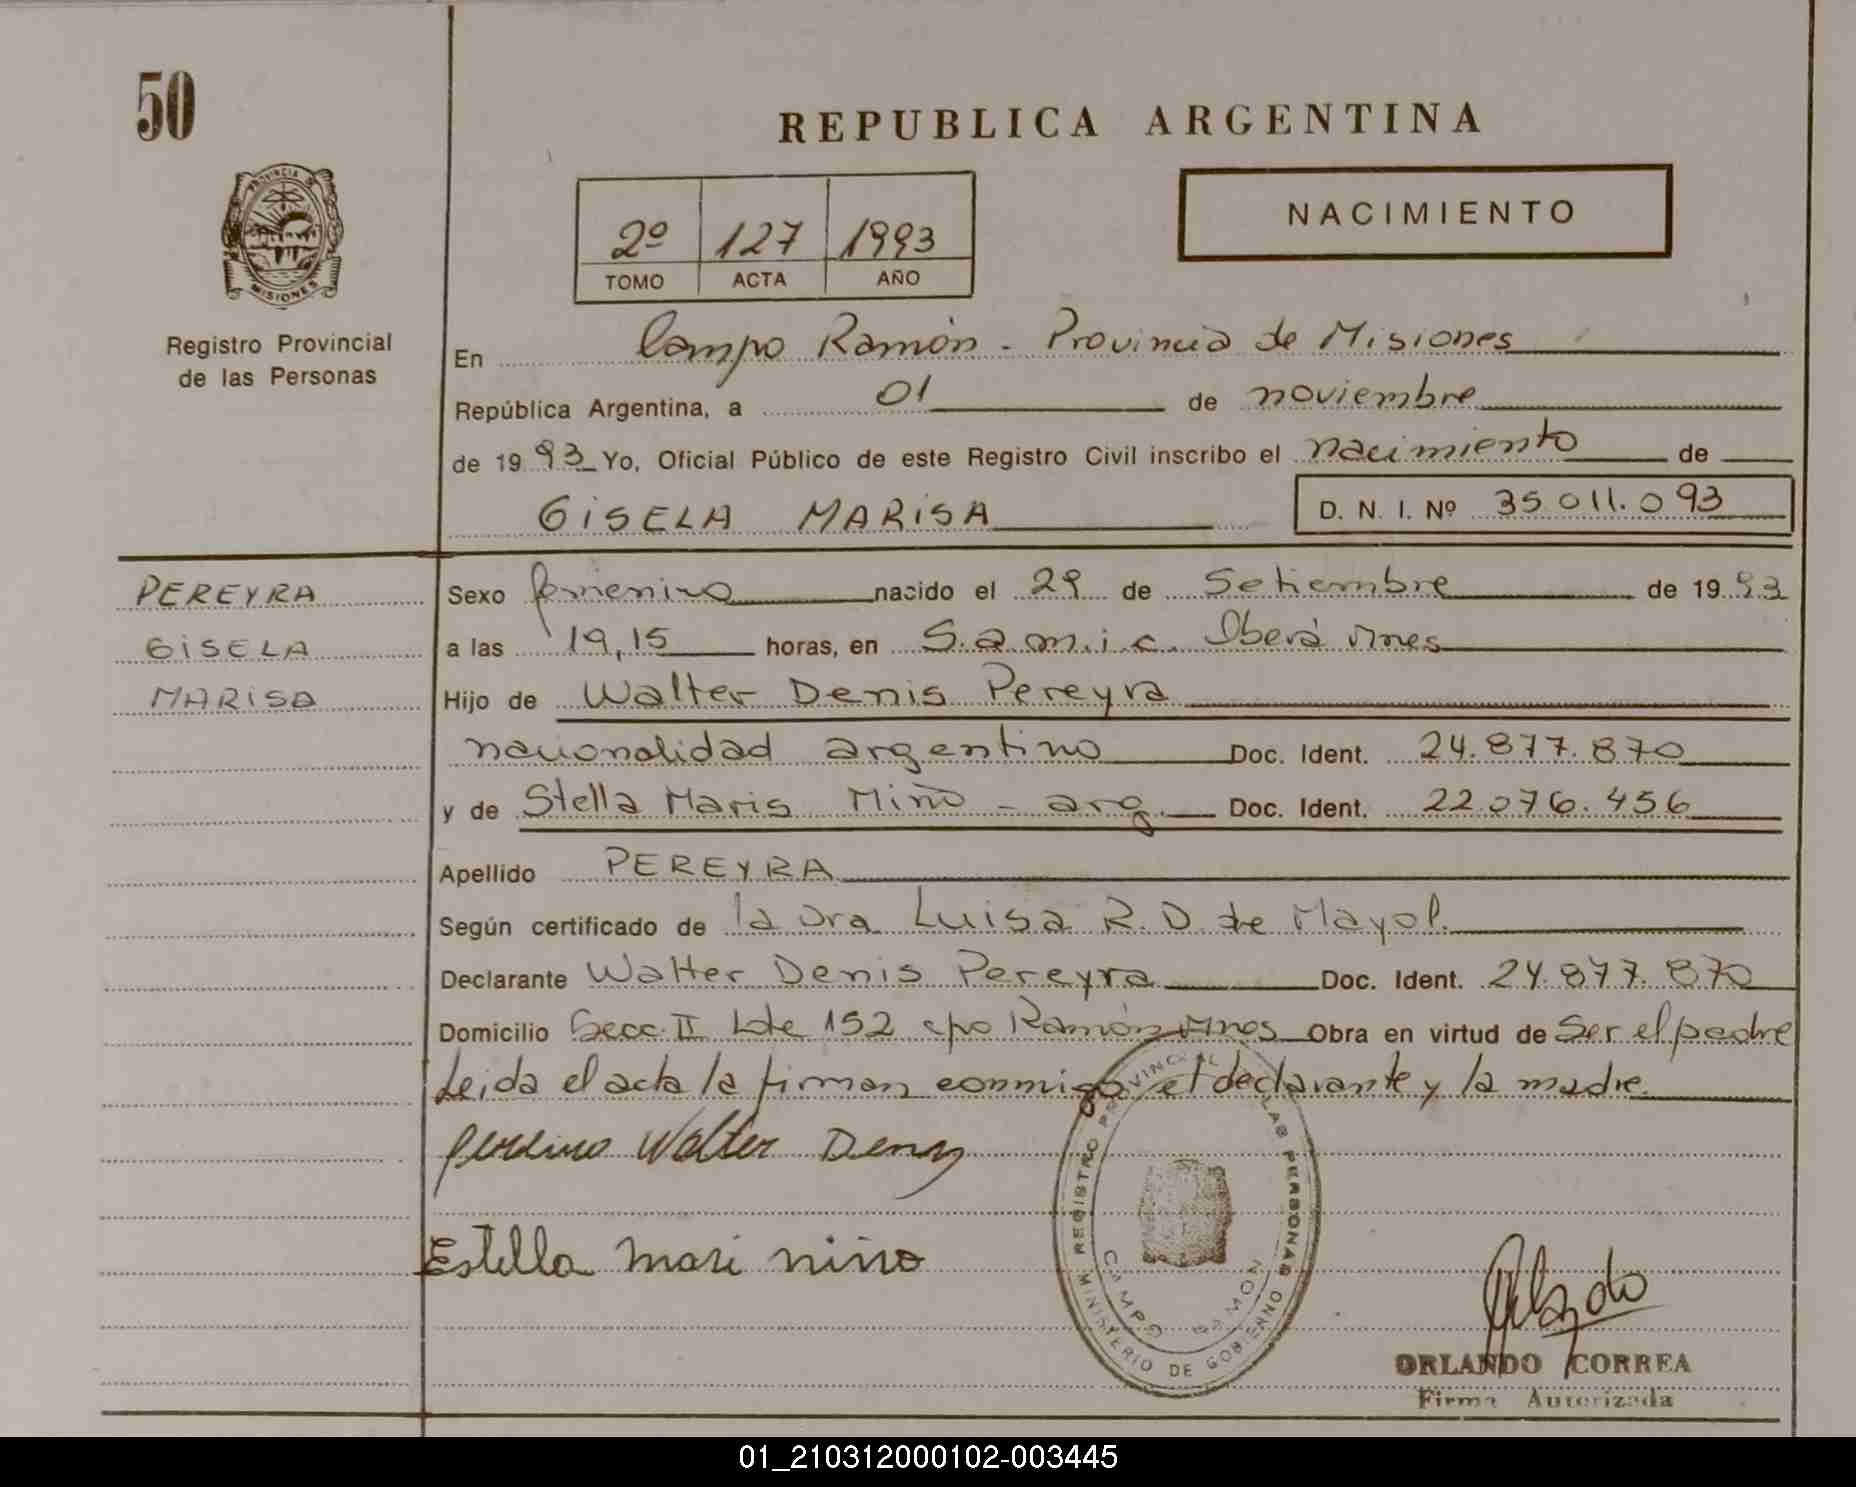 50
REPUBLICA ARGENTINA
PROVINCIA DE
MISIONES
Registro Provincial
de las Personas
2º 127 1993
TOMO ACTA AÑO
NACIMIENTO
En Campo Ramón - Provincia de Misiones
República Argentina, a 01 de noviembre
de 19 93 Yo, Oficial Público de este Registro Civil inscribo el nacimiento de
GISELA MARISA D. N. I. Nº 35.011.093
PEREYRA
GISELA
MARISA
Sexo femenino nacido el 29 de Setiembre de 19 93
a las 19,15 horas, en S.a.m.i.c. Oberá Mnes
Hijo de Walter Denis Pereyra
nacionalidad argentino Doc. Ident. 24.877.870
y de Stella Maris Miño - arg. Doc. Ident. 22.076.456
Apellido PEREYRA
Según certificado de la Dra Luisa R. D. de Mayol.
Declarante Walter Denis Pereyra Doc. Ident. 24.877.870
Domicilio Secc. II Lote 152 cpo Ramón Mnes Obra en virtud de Ser el padre
Leida el acta la firman conmigo el declarante y la madre.
Walter Denis
Estella mari niño
REGISTRO PROVINCIAL LAS PERSONAS
CAMPO RAMON
MINISTERIO DE GOBIERNO
ORLANDO CORREA
Firma Autorizada
01_210312000102-003445